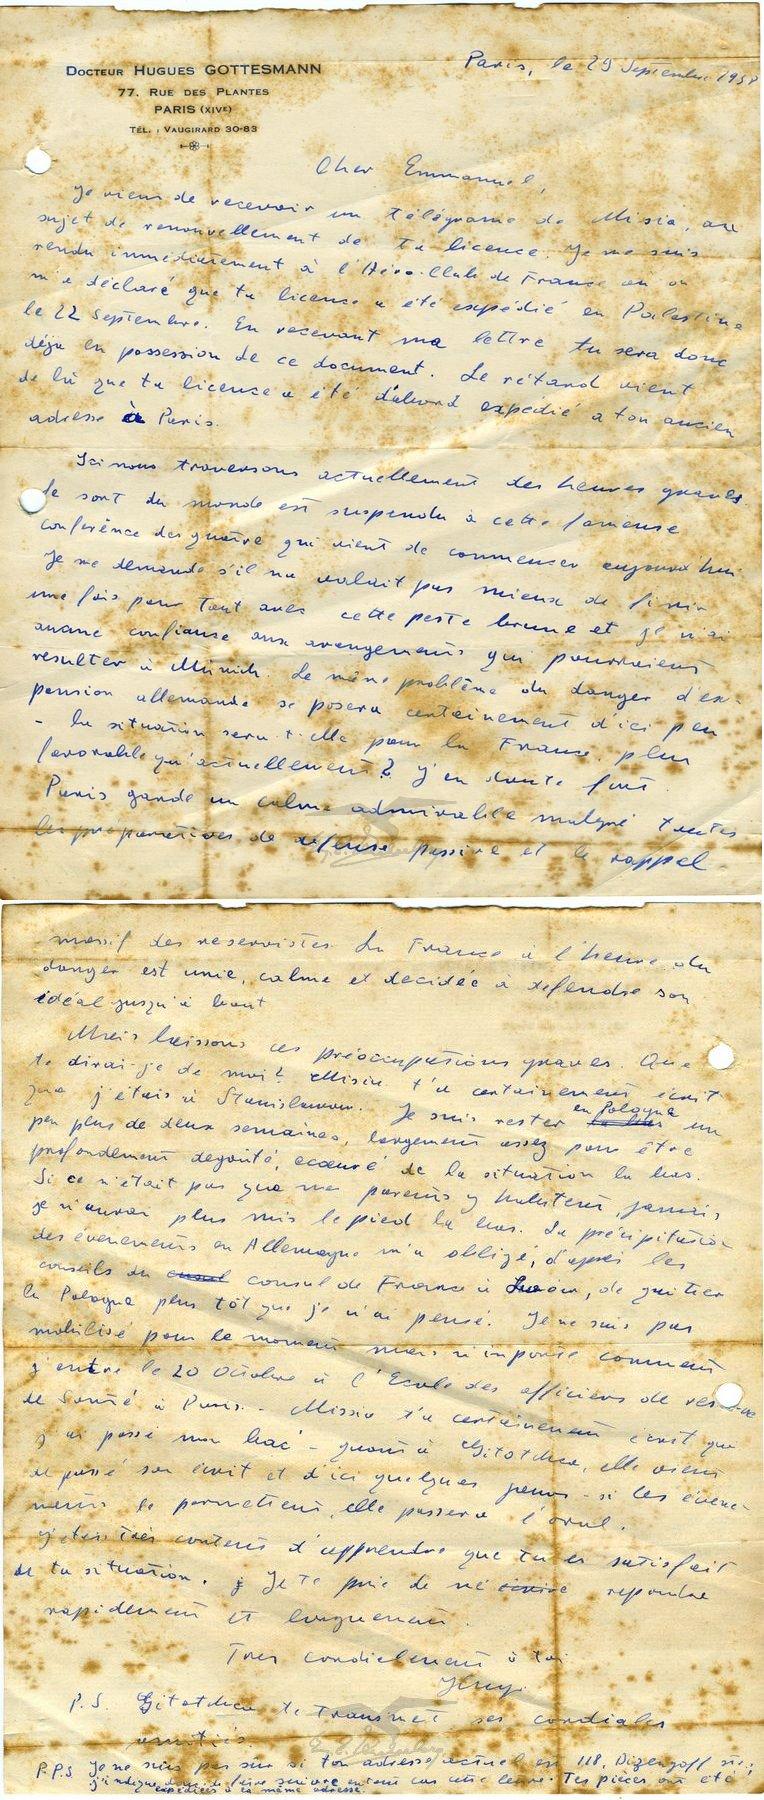 Docteur Hugues GOTTESMANN
77, Rue des Plantes
PARIS (XIVE)
Tél. : Vaugirard 30-83
Paris, le 29 Septembre 1938
Cher Emmanuel,
Je viens de recevoir un télégrame de Misia, au
sujet de renouvellement de ta licence. Je me suis
rendu immédiatement à l'Aéro-Club de France où on
m'a déclaré que ta licence a été expédié en Palestine
le 22 Septembre. En recevant ma lettre tu sera donc
déja en possession de ce document. Le rétard vient
de là que ta licence a été d'abord expédié a ton ancien
adresse à Paris.
Ici nous traversons actuellement des heures graves.
Le sort du monde est suspendu à cette fameuse
conférence des quatre qui vient de commencer aujourd'hui
Je me demande s'il ne valait pas mieux de finir
une fois pour tout avec cette peste brune et je n'ai
aucune confianse aux arrangements qui pourraient
resulter à Münich. Le même problême du danger d'ex-
pension allemande se posera certainement d'ici peu
- la situation sera-t-elle pour la France plus
favorable qu'actuellement? J'en doute fort.
Paris garde un calme admirable malgré toutes
les préparatives de défense passive et le rappel
massif des reservistes. La France à l'heure du
danger est unie, calme et decidée à defendre son
idéal jusqu'à bout
Mais laissons ces préoccupations graves. Que
te dirai-je de moi? Misia t'a certainement écrit
que j'étais à Stanislawow. Je suis rester en Pologne un
peu plus de deux semaines, largement assez pour être
profondement degouté, écœuré de la situation la bas.
Si ce n'était pas que mes parents y habitent, jamais
je n'aurai plus mis le pied la bas. La précipitation
des évenements en Allemagne m'a obligé, d'après les
conseils du consul de France à Lwow, de quitter
la Pologne plus tôt que je n'ai pensé. Je ne suis pas
mobilisé pour le moment mais n'importe comment
j'entre le 20 Octobre à l'Ecole des officiers de reserve
de Santé à Paris. - Missia t'a certainement ecrit que
j'ai passé mon bac - quant à Gitotchka, elle vient
de passé son écrit et d'ici quelques jours - si les évene-
ments le permettent, elle passera l'oral.
J'étais très content d'apprendre que tu es satisfait
de ta situation. Je te prie de me répondre
rapidement et longuement.
Tres cordialement à toi
P.S. Gitotchka te transmet ses cordiales
amitiés.
P.P.S Je ne suis pas sûr si ton adresse actuel est 118, Dizengoff str.;
j'indique donc de faire suivre en tout cas cette lettre. Tes pièces ont été
expédiées à la même adresse.